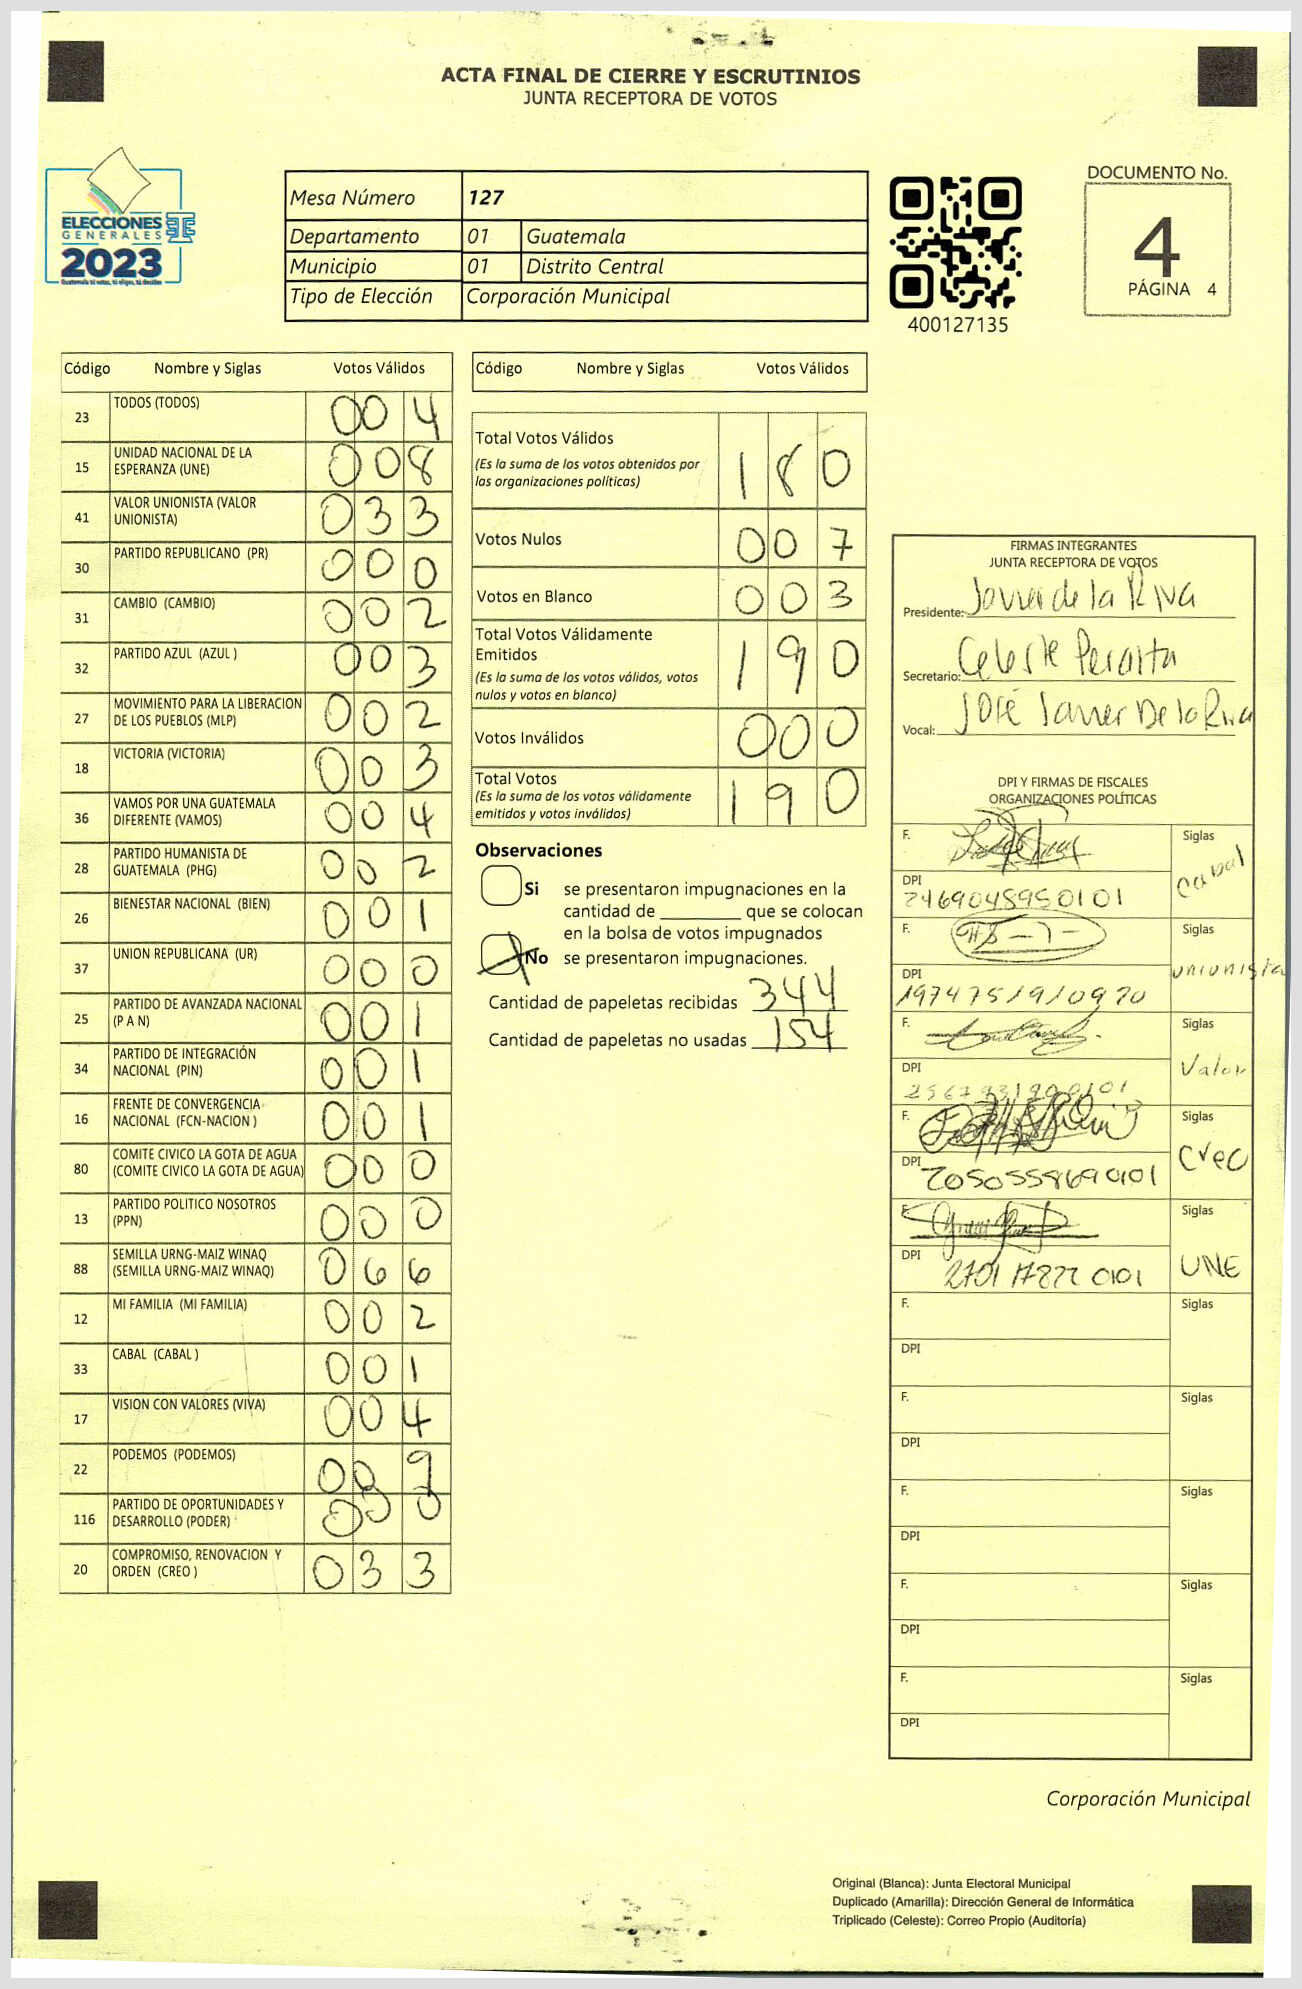 ACTA FINAL DE CIERRE Y ESCRUTINIOS
JUNTA RECEPTORA DE VOTOS
ELECCIONES
GENERALES
2023
Mesa Número 127
Departamento 01 Guatemala
Municipio 01 Distrito Central
Tipo de Elección Corporación Municipal
400127135
DOCUMENTO No.
4
PÁGINA 4
Código Nombre y Siglas Votos Válidos
23 TODOS (TODOS) 004
15 UNIDAD NACIONAL DE LA ESPERANZA (UNE) 008
41 VALOR UNIONISTA (VALOR UNIONISTA) 033
30 PARTIDO REPUBLICANO (PR) 000
31 CAMBIO (CAMBIO) 002
32 PARTIDO AZUL (AZUL ) 003
27 MOVIMIENTO PARA LA LIBERACION DE LOS PUEBLOS (MLP) 002
18 VICTORIA (VICTORIA) 003
36 VAMOS POR UNA GUATEMALA DIFERENTE (VAMOS) 004
28 PARTIDO HUMANISTA DE GUATEMALA (PHG) 002
26 BIENESTAR NACIONAL (BIEN) 001
37 UNION REPUBLICANA (UR) 000
25 PARTIDO DE AVANZADA NACIONAL (P A N) 001
34 PARTIDO DE INTEGRACIÓN NACIONAL (PIN) 001
16 FRENTE DE CONVERGENCIA NACIONAL (FCN-NACION ) 001
80 COMITE CIVICO LA GOTA DE AGUA (COMITE CIVICO LA GOTA DE AGUA) 000
13 PARTIDO POLITICO NOSOTROS (PPN) 000
88 SEMILLA URNG-MAIZ WINAQ (SEMILLA URNG-MAIZ WINAQ) 066
12 MI FAMILIA (MI FAMILIA) 002
33 CABAL (CABAL ) 001
17 VISION CON VALORES (VIVA) 004
22 PODEMOS (PODEMOS) 009
116 PARTIDO DE OPORTUNIDADES Y DESARROLLO (PODER) 000
20 COMPROMISO, RENOVACION Y ORDEN (CREO ) 033
Código Nombre y Siglas Votos Válidos
Total Votos Válidos 180
(Es la suma de los votos obtenidos por
las organizaciones políticas)
Votos Nulos 007
Votos en Blanco 003
Total Votos Válidamente
Emitidos 190
(Es la suma de los votos válidos, votos
nulos y votos en blanco)
Votos Inválidos 000
Total Votos 190
(Es la suma de los votos válidamente
emitidos y votos inválidos)
Observaciones
Si se presentaron impugnaciones en la
cantidad de ________ que se colocan
en la bolsa de votos impugnados
No se presentaron impugnaciones.
Cantidad de papeletas recibidas 344
Cantidad de papeletas no usadas 154
FIRMAS INTEGRANTES
JUNTA RECEPTORA DE VOTOS
Presidente: Javier de la Riva
Secretario: Celeste Peralta
Vocal: JOSÉ Javier De la Riva
DPI Y FIRMAS DE FISCALES
ORGANIZACIONES POLÍTICAS
F. Siglas Cabal
DPI 2469048950101
F. Siglas unionista
DPI 1974751910920
F. Siglas Valor
DPI
F. Siglas Creo
DPI 2050558690101
F. Siglas UNE
DPI 2701178220101
F. Siglas
DPI
F. Siglas
DPI
F. Siglas
DPI
F. Siglas
DPI
F. Siglas
DPI
Corporación Municipal
Original (Blanca): Junta Electoral Municipal
Duplicado (Amarilla): Dirección General de Informática
Triplicado (Celeste): Correo Propio (Auditoría)